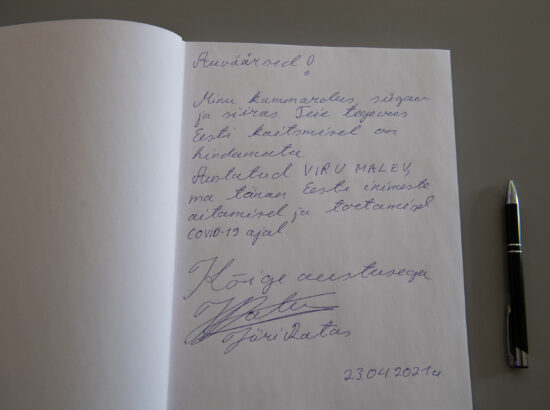 Auväärsed!
Minu kummardus, sügav
ja siiras Teie tegevus
Eesti kaitsmisel on
hindamatu.
Austatud VIRU MALEV,
ma tänan Eesti inimeste
aitamisel ja toetamisel
COVID-19 ajal.
Kõige austusega
Jüri Ratas
23.04.2021a